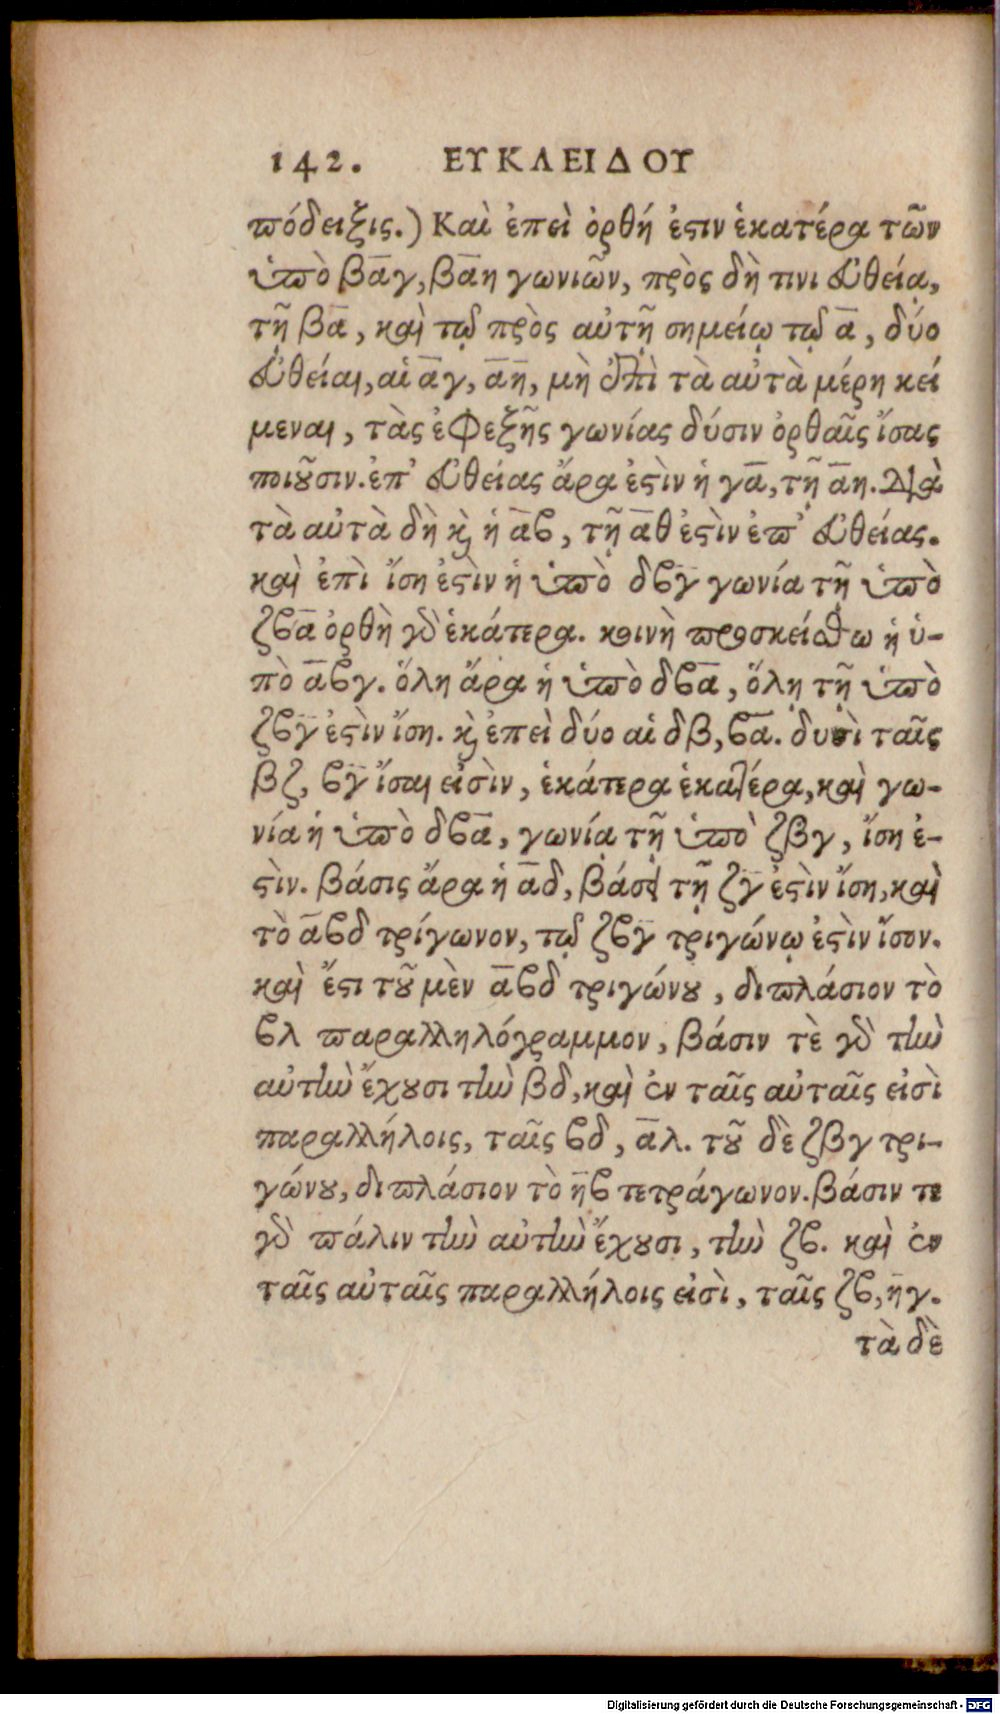 142. ΕΥΚΛΕΙΔΟΥ
πόδειξις.) Καὶ ἐπεὶ ὀρθή ἐϛιν ἑκατέρα τῶν
ὑπὸ βα̅γ, βα̅η γωνιῶν, πρὸς δὴ τινι εὐθείᾳ,
τῇ βα̅, καὶ τῷ πρὸς αὐτῇ σημείῳ τῷ α̅, δύο
εὐθείαι, αἱ α̅γ, α̅η̅, μὴ ἐπὶ τὰ αὐτὰ μέρη κεί
μεναι, τὰς ἐφεξῆς γωνίας δύσιν ὀρθαῖς ἴσας
ποιοῦσιν. ἐπ' εὐθείας ἄρα ἐϛὶν ἡ γα̅, τῇ α̅η. Διὰ
τὰ αὐτὰ δὴ ϗ ἡ α̅ϐ, τῇ α̅θ ἐϛὶν ἐπ' εὐθείας.
καὶ ἐπὶ ἴση ἐϛὶν ἡ ὑπὸ δϐγ̅ γωνία τῇ ὑπὸ
ζϐα̅ ὀρθὴ γὰρ ἑκάτερα. κοινὴ προσκείσθω ἡ ὑ-
πὸ α̅ϐγ. ὅλη ἄρα ἡ ὑπὸ δϐα̅, ὅλῃ τῇ ὑπὸ
ζϐγ̅ ἐϛὶν ἴση. ϗ ἐπεὶ δύο αἱ δβ, ϐα̅. δυσὶ ταῖς
βζ, ϐγ̅ ἴσαι εἰσὶν, ἑκάτερα ἑκατέρα, καὶ γω-
νία ἡ ὑπὸ δϐα̅, γωνίᾳ τῇ ὑπὸ ζβγ, ἴση ἐ-
ϛὶν. βάσις ἄρα ἡ α̅δ, βάσει τῇ ζγ̅ ἐϛὶν ἴση, καὶ
τὸ α̅ϐδ τρίγωνον, τῷ ζϐγ̅ τριγώνῳ ἐϛὶν ἴσον.
καὶ ἔϛι τοῦ μὲν α̅ϐδ τριγώνου, διπλάσιον τὸ
ϐλ παραλληλόγραμμον, βάσιν τὲ γὰρ τὴν
αὐτὴν ἔχουσι τὴν βδ, καὶ ἐν ταῖς αὐταῖς εἰσὶ
παραλλήλοις, ταῖς ϐδ, α̅λ. τοῦ δὲ ζβγ τρι-
γώνου, διπλάσιον τὸ η̅ϐ τετράγωνον. βάσιν τε
γὰρ πάλιν τὴν αὐτὴν ἔχουσι, τὴν ζϐ. καὶ ἐν
ταῖς αὐταῖς παραλλήλοις εἰσὶ, ταῖς ζϐ, η̅γ.
τὰ δὲ
Digitalisierung gefördert durch die Deutsche Forschungsgemeinschaft - DFG